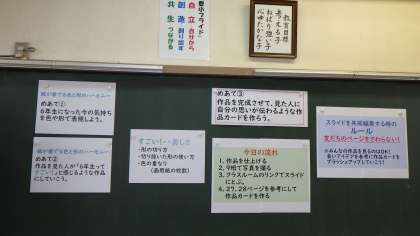 豊小プライド
自立 自分から
創造 創り出す
共生 つながる
教育目標
考える子
ねばり強い子
心ゆたかな子
紙が奏でる色と形のハーモニー
めあて①
6年生になった今の気持ち
を色や形で表現しよう。
紙が奏でる色と形のハーモニー
めあて②
作品を見た人が「6年生って
すごい!」と感じるような作品
にしていこう。
すごい!・美しさ
・形の切り方
・切り抜いた形の使い方
・色の重なり
(画用紙の枚数)
めあて③
作品を完成させて、見た人に
自分の思いが伝わるような作
品カードを作ろう。
今日の流れ
1、作品を仕上げる
2、作品で写真を撮る
3、クラスルームのリンクでスライド
にとぶ。
4、27、28ページを参考にして
作品カードを作る
スライドを共同編集する時の
ルール
友だちのページをさわらない!
※みんなの作品を見るのはOK!
良いアイデアを参考に作品カードを
ブラッシュアップしていこう!